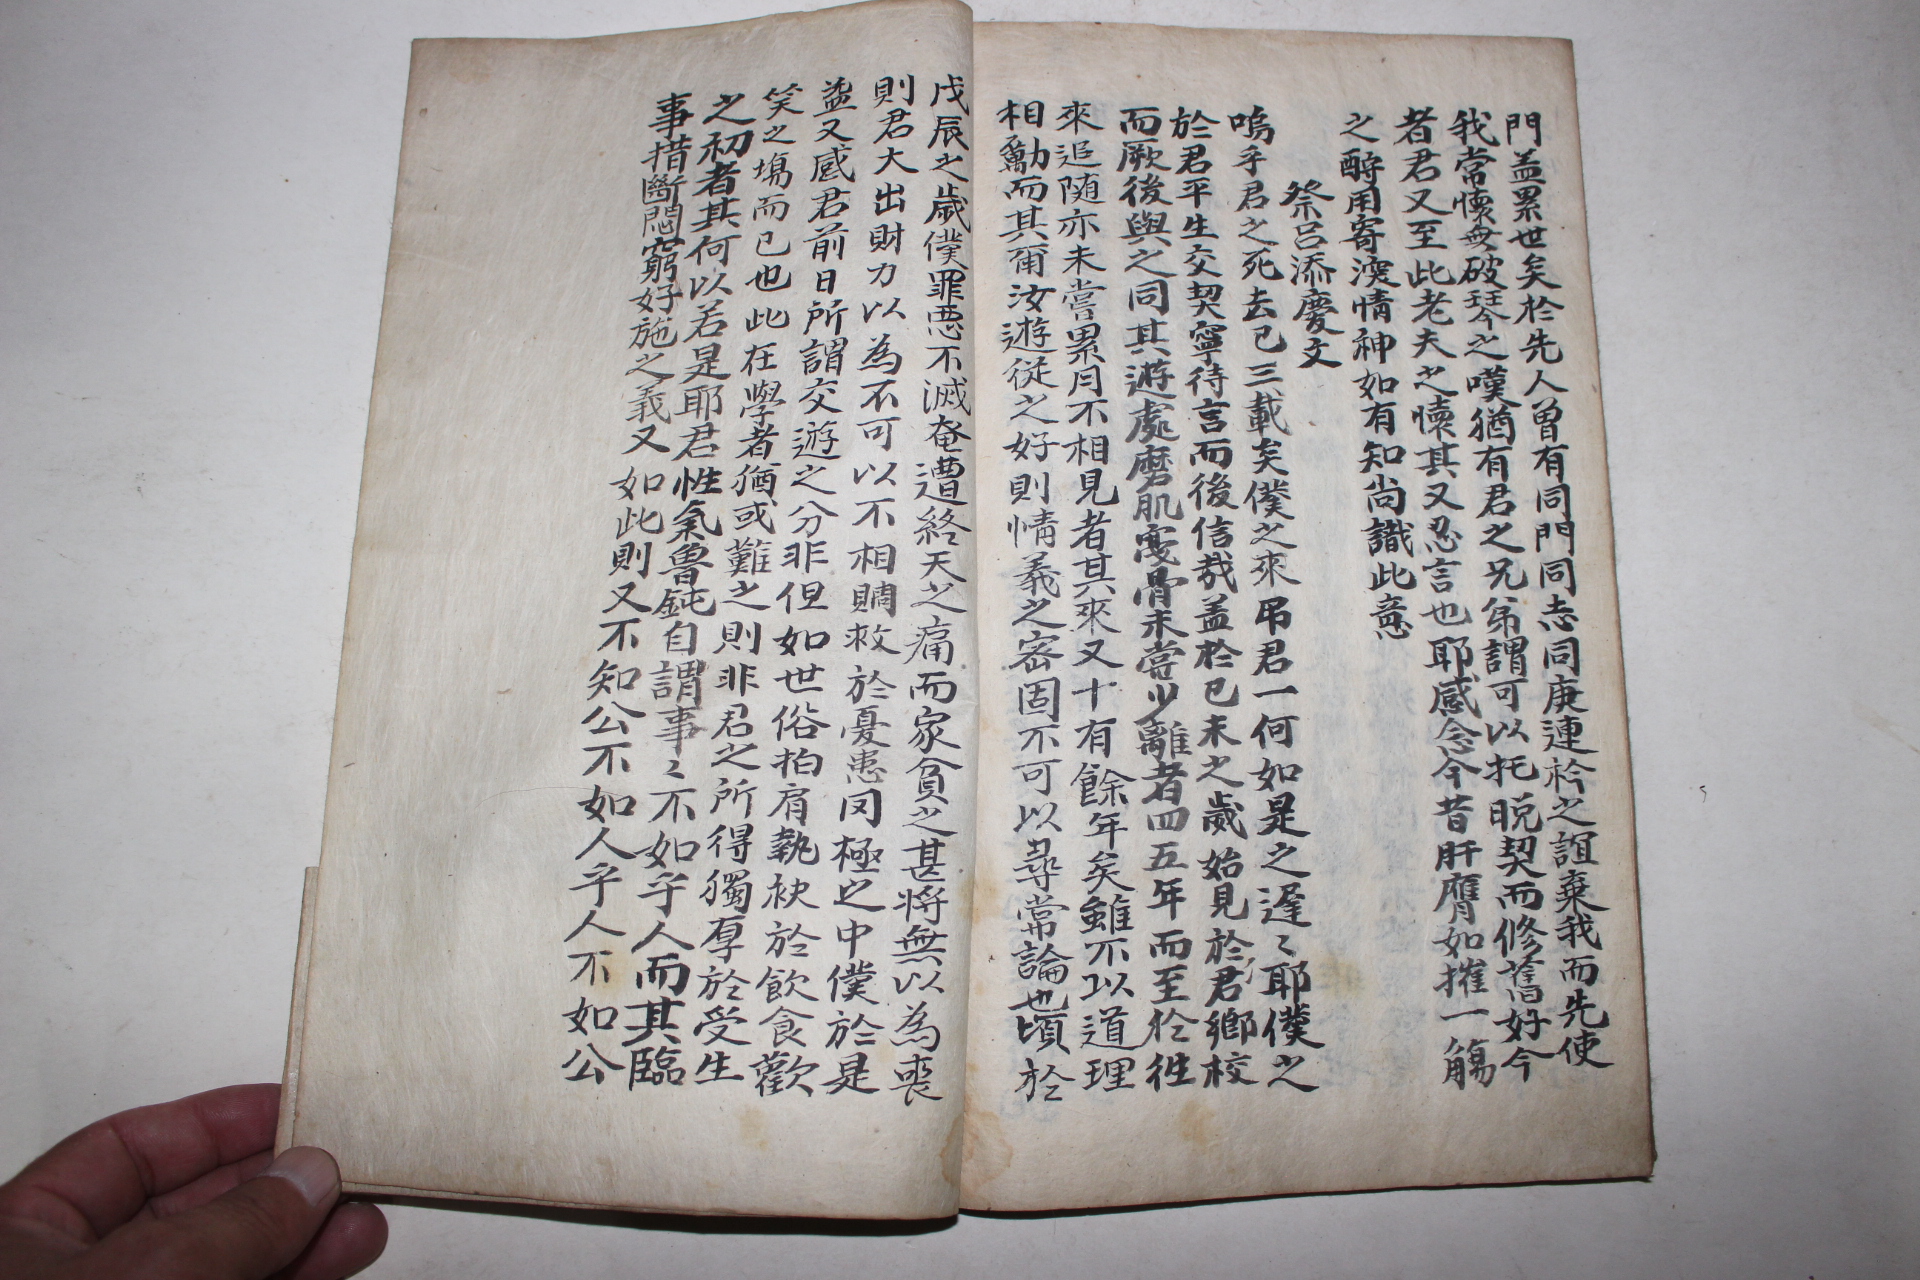 門盖累世矣於先人曾有同門同志同庚連衿之誼棄我而先使
我常懷無破琴之嘆猶有君之兄弟謂可以托晩契而修舊好今
者君又至此老夫之懷其又忍言也耶感念今昔肝膺如摧一觴
之酹用寄淚情神如有知尚識此意
祭呂添慶文
嗚乎君之死去已三載矣僕之來吊君一何如是之遲〻耶僕之
於君平生交契寧待言而後信哉盖於已未之歲始見於君鄉校
而厥後與之同其遊處磨肌戛骨未嘗少離者四五年而至於徃
來追随亦未嘗累月不相見者其來又十有餘年矣雖不以道理
相勸而其爾汝遊従之好則情義之密固不可以尋常論也頃於
戊辰之歲僕罪惡不滅奄遭終天之痛而家貧之甚將無以為喪
則君大出財力以為不可以不相賙救於憂患罔極之中僕於是
益又感君前日所謂交遊之分非但如世俗拍肩執袂於飮食歡
笑之塲而已也此在學者猶或難之則非君之所得獨厚於受生
之初者其何以若是耶君性氣魯鈍自謂事〻不如乎人而其臨
事措斷悶窮好施之義又如此則又不知公不如人乎人不如公